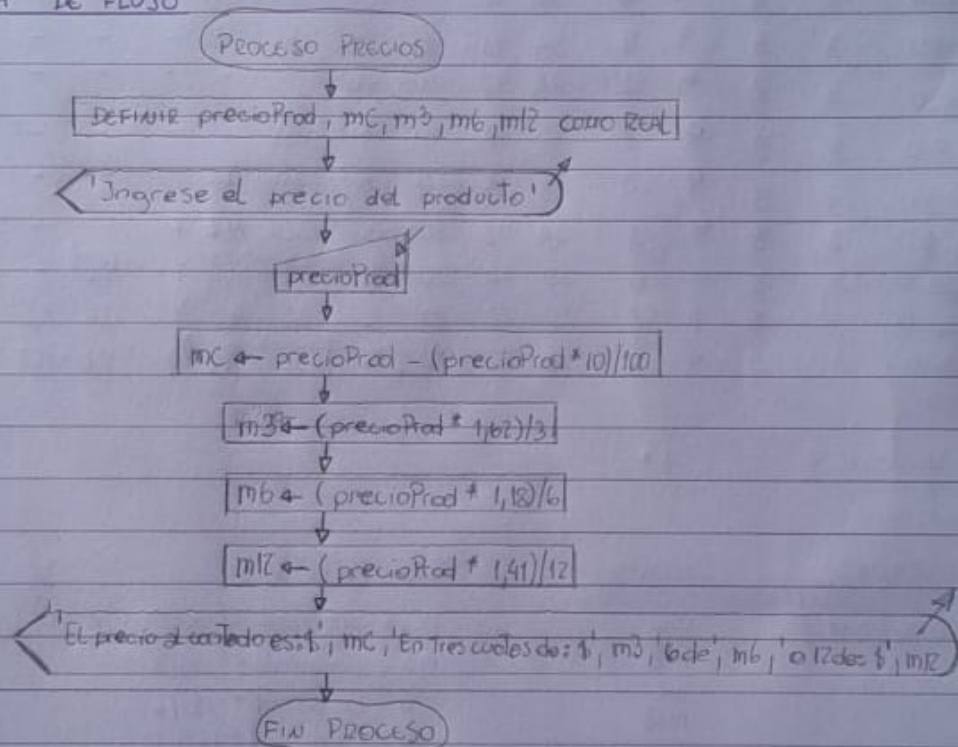 DE FLUJO
PROCESO PRECIOS
DEFINIR precioProd, mC, m3, m6, m12 COMO REAL
'Ingrese el precio del producto'
precioProd
mC ← precioProd - (precioProd * 10)/100
m3 ← (precioProd * 1,62)/3
m6 ← (precioProd * 1,18)/6
m12 ← (precioProd * 1,41)/12
'El precio al contado es: $', mC, 'En tres cuotas de: $', m3, '6 de', m6, 'o 12 de: $', m12
FIN PROCESO